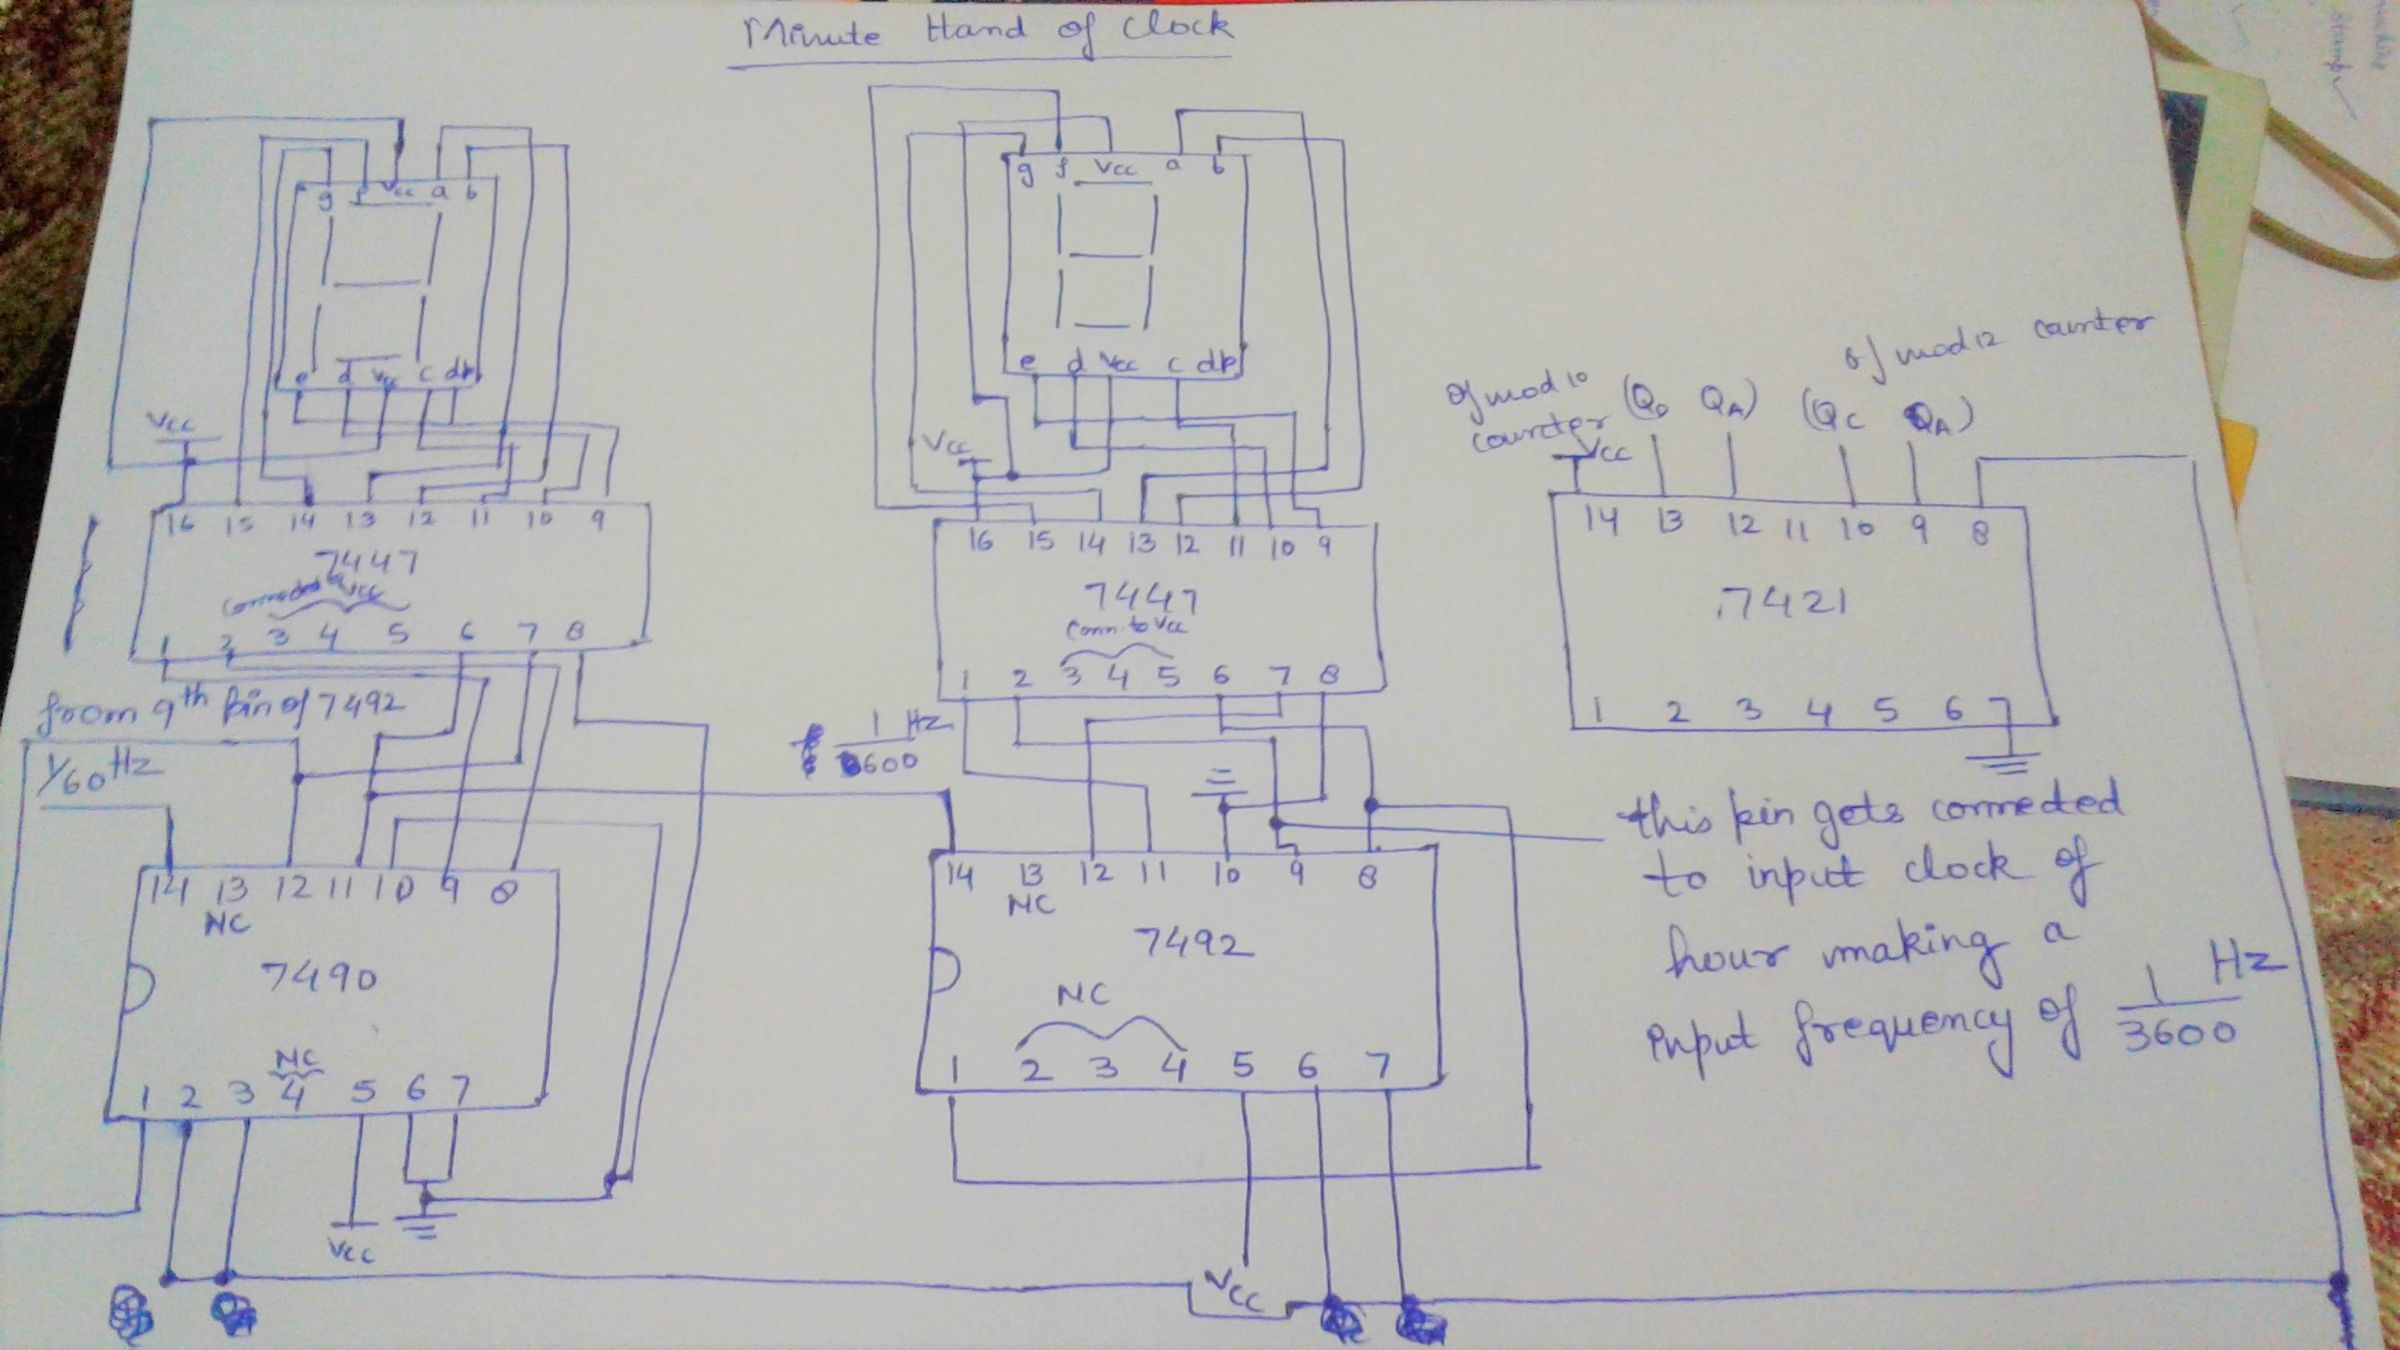 Minute Hand of Clock
g f Vcc a b
e d Vcc c dp
Vcc
16 15 14 13 12 11 10 9
7447
connected to Vcc
1 2 3 4 5 6 7 8
from 9th pin of 7492
1/60 Hz
14 13 12 11 10 9 8
NC
7490
NC
1 2 3 4 5 6 7
Vcc
g f Vcc a b
e d Vcc c dp
Vcc
16 15 14 13 12 11 10 9
7447
Conn. to Vcc
1 2 3 4 5 6 7 8
1 Hz
3600
14 13 12 11 10 9 8
NC
7492
NC
1 2 3 4 5 6 7
Vcc
of mod 10
counter
(QD QA) (QC QA)
of mod 12 counter
Vcc
14 13 12 11 10 9 8
7421
1 2 3 4 5 6 7
this pin gets connected
to input clock of
hour making a
input frequency of 1 Hz
3600